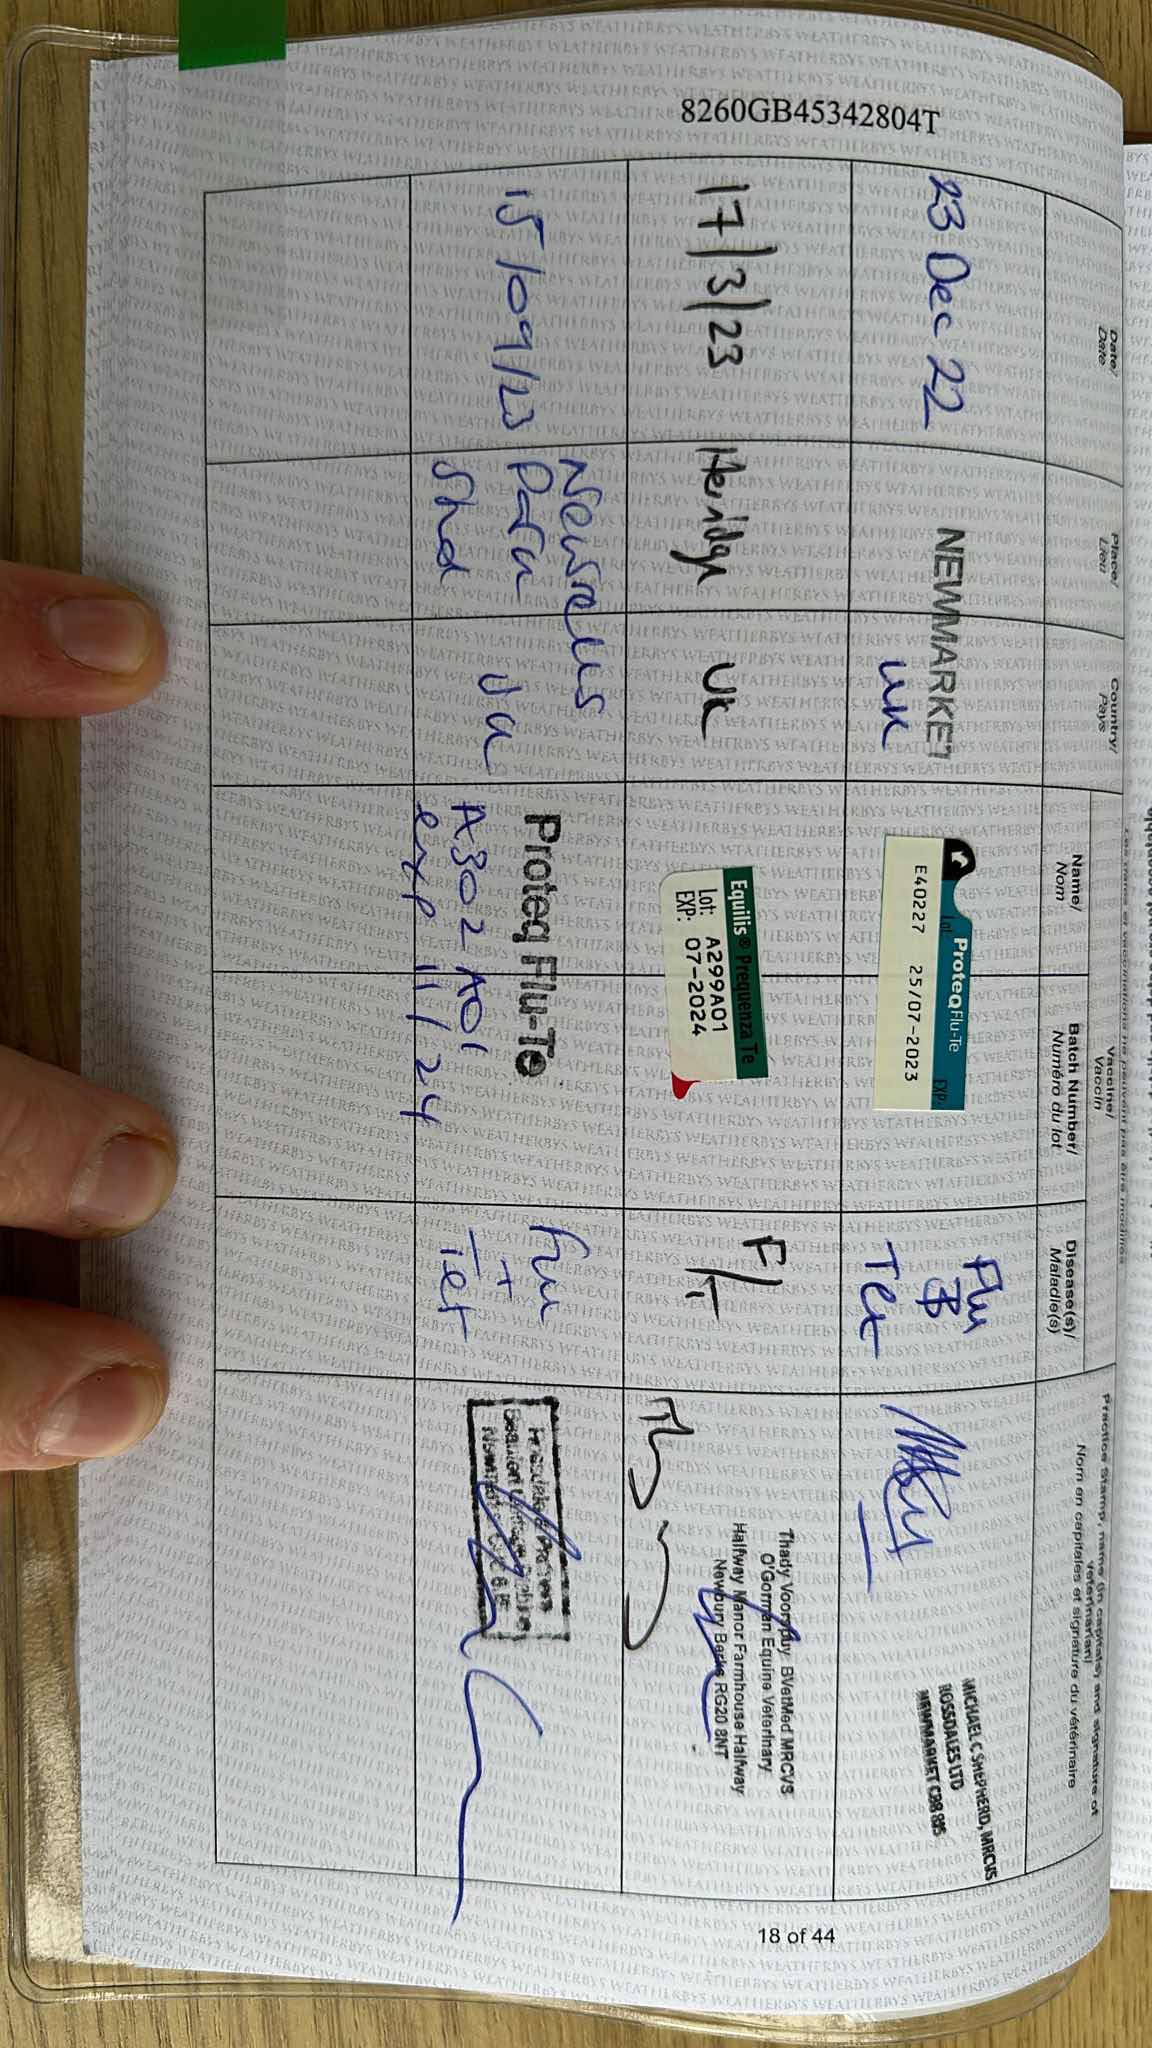 8260GB45342804T
Date/
Date
Place/
Lieu
Country/
Pays
Vaccine/
Vaccin
Name/
Nom
Batch Number/
Numéro du lot
Disease(s)/
Maladie(s)
Practice Stamp, name (in capitals) and signature of
veterinarian/
Nom en capitales et signature du vétérinaire
23 Dec 22
NEWMARKET
UK
ProteqFlu-Te
Lot EXP
E40227 25/07-2023
Flu
&
Tet
MICHAEL C SHEPHERD, MRCVS
ROSSDALES LTD
NEWMARKET CB8
17/3/23
Heridge
UK
Equilis® Prequenza Te
Lot: A299A01
EXP: 07-2024
F/T
Thady Voorspuy BVetMed MRCVS
O'Gorman Equine Veterinary
Halfway Manor Farmhouse Halfway
Newbury Berks RG20 8NT
15/09/23
Newsells
Park
Stud
UK
Proteq Flu-Te
A302A01
exp 11/24
Flu
+
Tet
18 of 44
WEATHERBYS WEATHERBYS WEATHERBYS